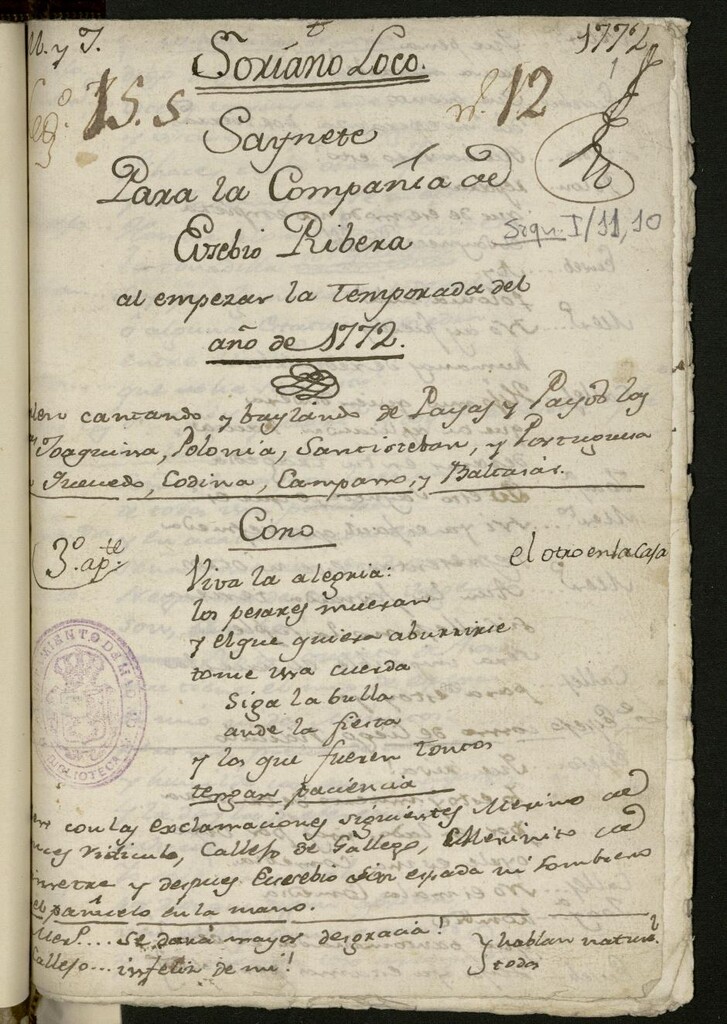 M. y T.
1772
Soriano Loco.
Leg.º 15. 5
n.º 12
Saynete
Para la Compañía de
Eusebio Ribera
Sign. I/11,10
al empezar la temporada del
año de 1772.
cantando y baylando de Payas y Payos las
Joaquina, Polonia, Santisteban, y Portuguesa
Quevedo, Codina, Campano, y Baltasar.
Coro
3.º ap.te
el otro en la Casa
Viva la alegria:
los pesares mueran
y el que quiera aburrirse
tome una cuerda
siga la bulla
ande la fiesta
y los que fueren tontos
tengan paciencia
con las exclamaciones siguientes Merino de
ridiculo, Callejo de Gallego, Merinito de
y despues Eusebio sin espada ni sombrero
el pañuelo en la mano.
Mer.o.... Se dará mayor desgracia!
Callejo... infeliz de mi!
y hablan
todos
AYUNTAMIENTO DE MADRID
BIBLIOTECA